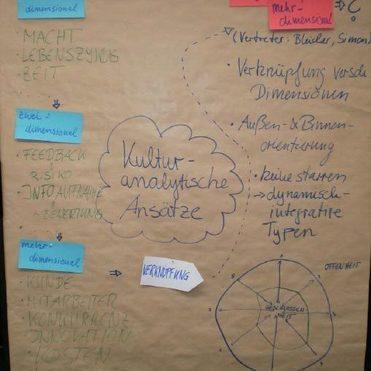 dimensional
· MACHT
· LEBENSZYKLUS
· ZEIT
zwei-
dimensional
· FEEDBACK
RISIKO
· INFO AUFNAHME
- BEWERTUNG
mehr-
dimensional
· KUNDE
· MITARBEITER
· KONKURRENZ
· INNOVATION
· KOSTEN
Kultur-
analytische
Ansätze
VERKNÜPFUNG
mehr-
dimensional
(Vertreter: Bleicher, Simon)
· Verknüpfung versch
Dimensionen
· Außen- & Binnen-
orientierung
· keine starren
→ dynamisch-
integrative
Typen
OFFENHEIT